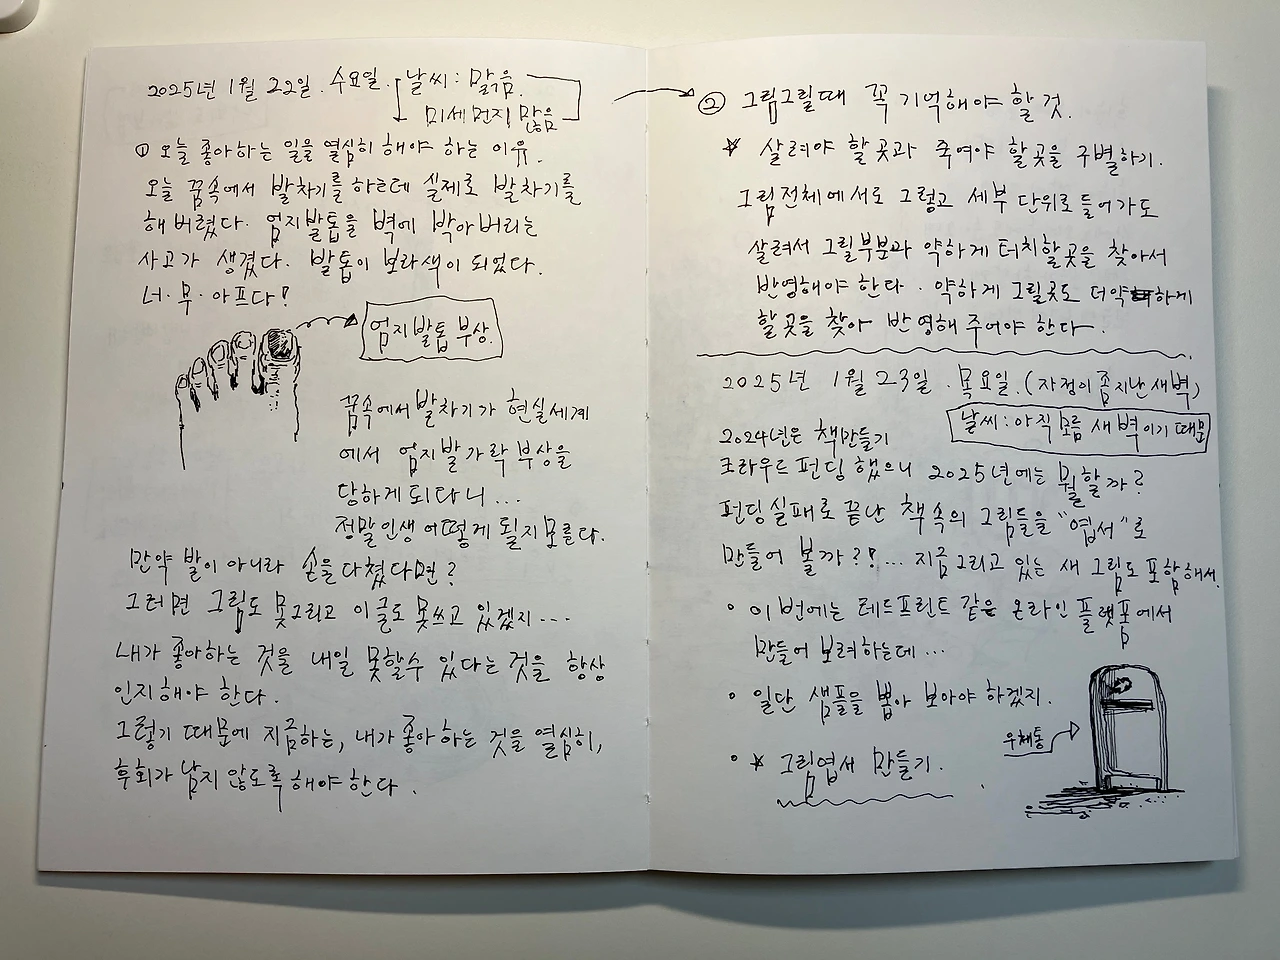 2025년 1월 22일. 수요일. 날씨: 맑음.
미세먼지 많음
① 오늘 좋아하는 일을 열심히 해야 하는 이유.
오늘 꿈속에서 발차기를 하는데 실제로 발차기를
해 버렸다. 엄지발톱을 벽에 박아버리는
사고가 생겼다. 발톱이 보라색이 되었다.
너·무·아프다!
엄지발톱 부상.
꿈속에서 발차기가 현실세계
에서 엄지발가락 부상을
당하게 되다니...
정말 인생 어떻게 될지 모른다.
만약 발이 아니라 손을 다쳤다면?
그러면 그림도 못그리고 이 글도 못쓰고 있겠지...
내가 좋아하는 것을 내일 못할수 있다는 것을 항상
인지해야 한다.
그렇기 때문에 지금하는, 내가 좋아하는 것을 열심히,
후회가 남지 않도록 해야 한다.
② 그림그릴때 꼭 기억해야 할 것.
☆ 살려야 할 곳과 죽여야 할곳을 구별하기.
그림전체에서도 그렇고 세부 단위로 들어가도
살려서 그릴부분과 약하게 터치할곳을 찾아서
반영해야 한다. 약하게 그릴곳도 더약하게
할곳을 찾아 반영해 주어야 한다.
2025년 1월 23일. 목요일. (자정이 좀지난 새벽)
날씨: 아직 모름 새벽이기 때문
2024년은 책만들기
크라우드 펀딩 했으니 2025년에는 뭘할까?
펀딩실패로 끝난 책속의 그림들을 "엽서"로
만들어 볼까?!... 지금그리고 있는 새 그림도 포함해서.
• 이번에는 테드프린트 같은 온라인 플랫폼에서
만들어 보려하는데...
• 일단 샘플을 뽑아 보아야 하겠지.
• ☆ 그림엽세 만들기.
우체통